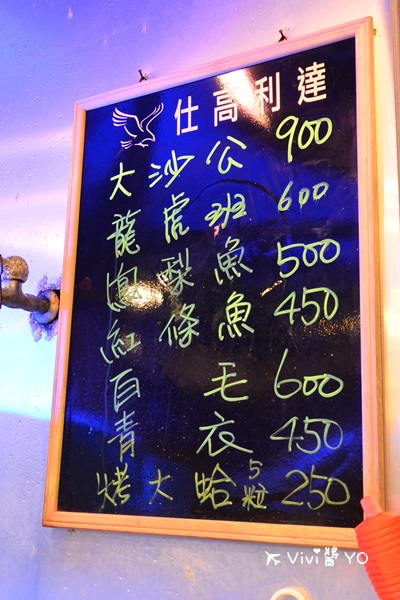 仕高利達
大沙公 900
龍虎班 600
梨魚 500
紅條魚 450
百毛 600
青衣 450
烤大蛤5粒 250
Vivi醬YO